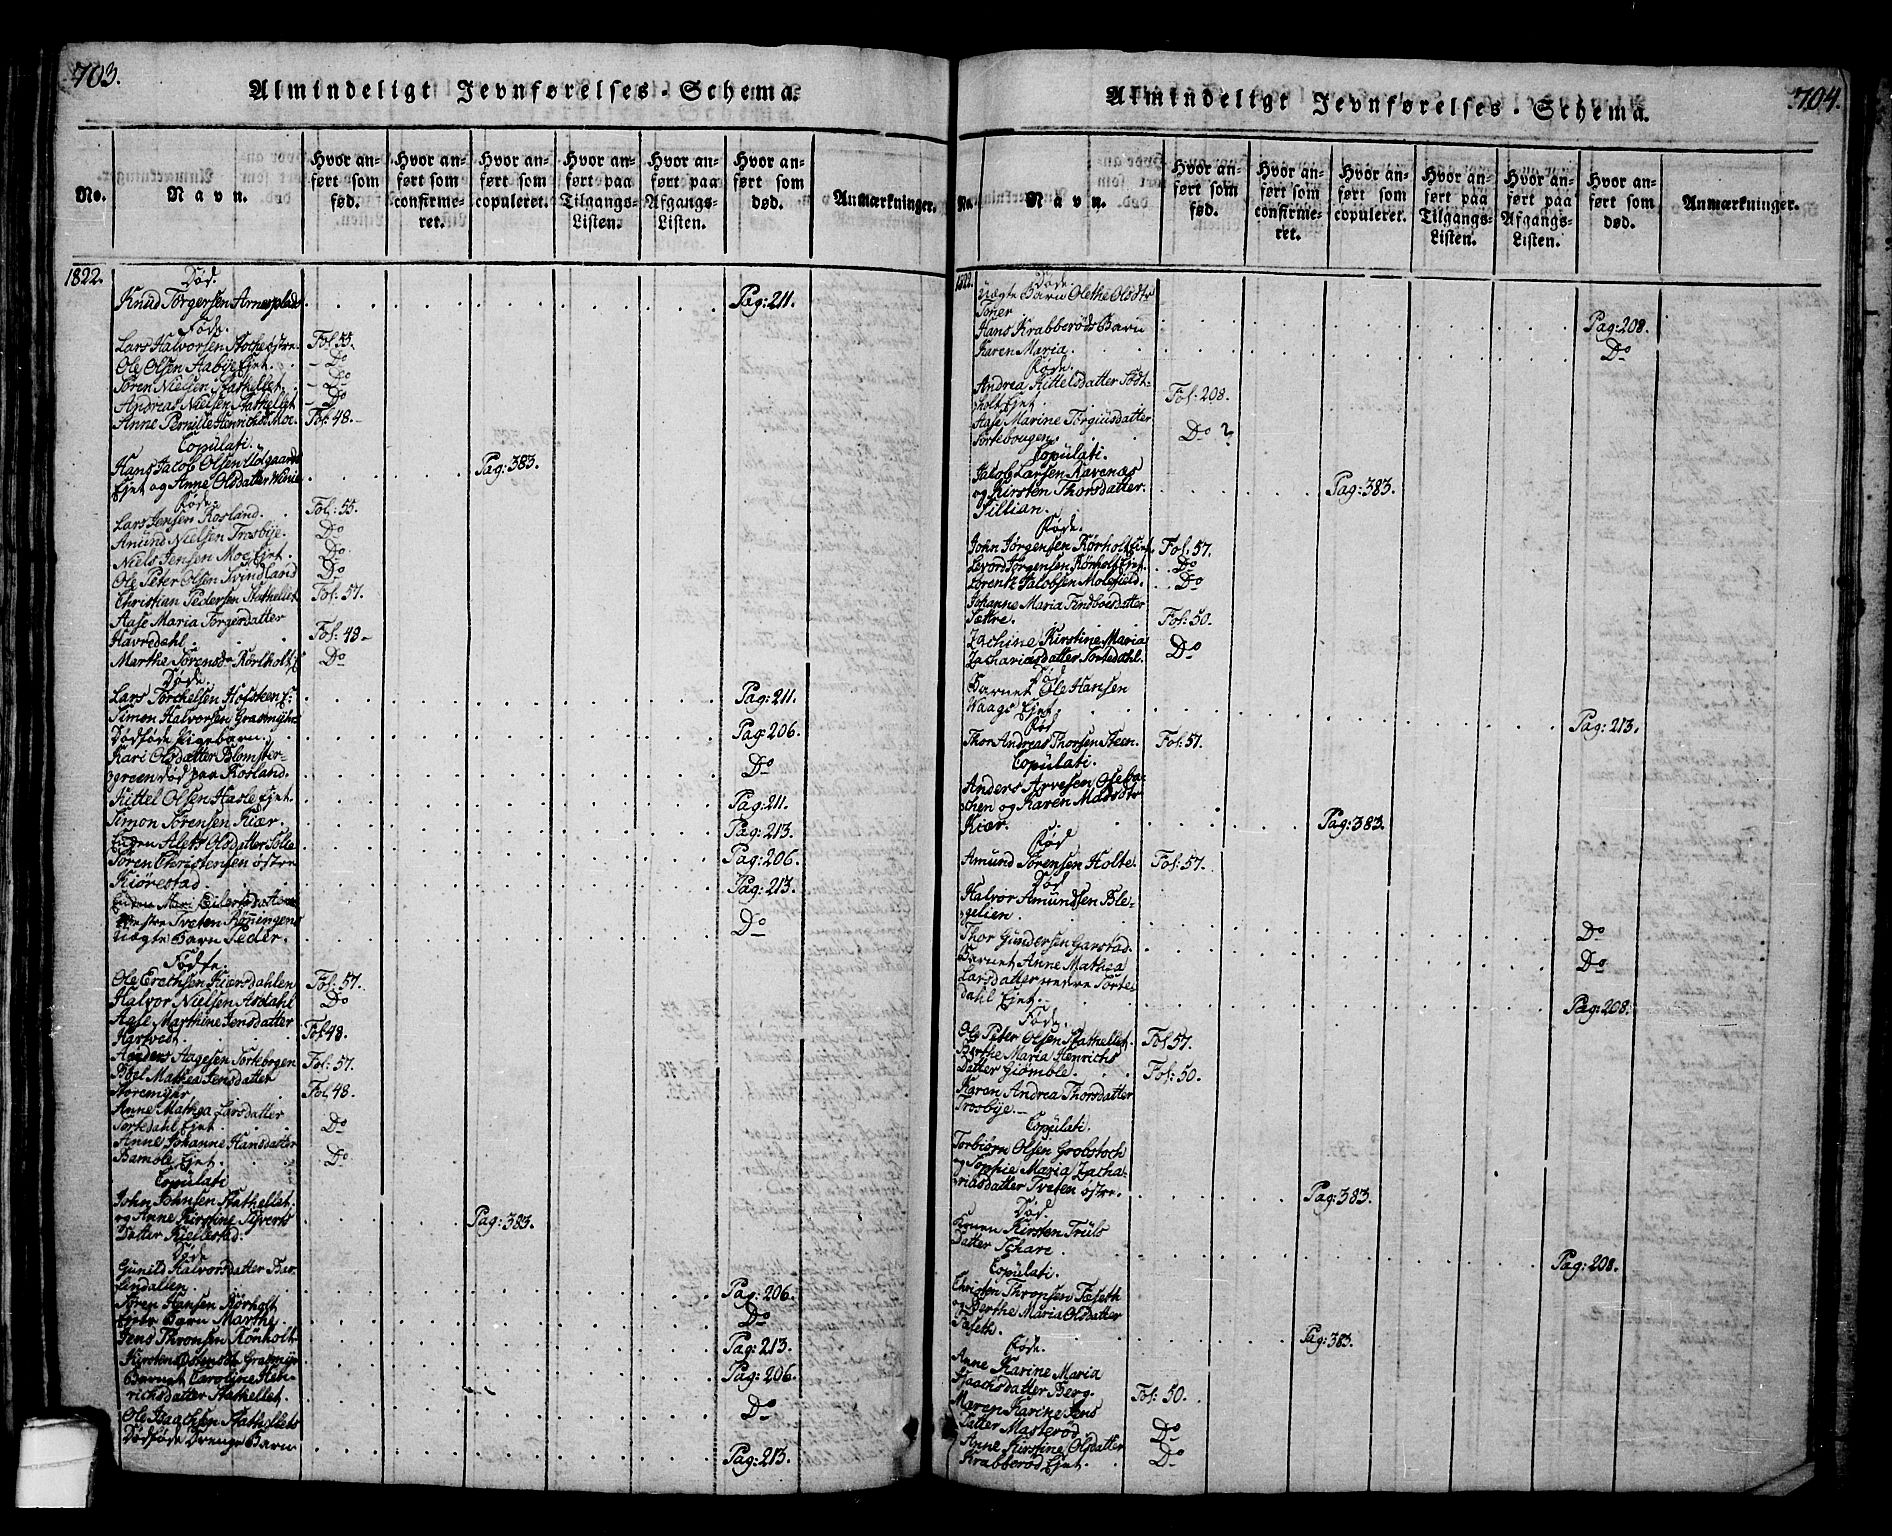 703.
Almindeligt Jevnførelses-Schema.
No.
Navn.
Hvor anført som fød.
Hvor anført som confirmeret.
Hvor anført som copuleret.
Hvor anført paa Tilgangs-Listen.
Hvor anført paa Afgangs-Listen.
Hvor anført som død.
Anmærkninger.
1822. Død.
Knud Torgersen Arnesplads Pag: 211.
Føde.
Lars Halvorsen Stochc østre. Fol: 55.
Ole Olsen Aabye Ejet. Do
Søren Nielsen Stathellet. Do
Andreas Nielsen Stathellet Do
Anne Pernille Henrichsd Moe. Fol: 48.
Copulati.
Hans Jacob Olsen Udgaarden
Ejet og Anne Olsdatter Winie Pag: 383.
Føde.
Lars Jensen Rosland. Fol: 55.
Amund Nielsen Trosbye. Do
Niels Jensen Moe Ejet. Do
Ole Peter Olsen Svindland Do
Christian Pedersen Stathellet Fol: 57.
Aase Maria Torgersdatter
Havredahl. Fol: 48
Marthe Sørensdr Rörholt Do
Døde.
Lars Torchelsen Hofsken Pag: 211.
Simon Halvorsen Grasmyhr
Dødføde Pigebarn. Pag 206.
Kari Olsdatter Blomster-
green død paa Rosland. Do
Kittel Olsen Hasle Ejet. Pag: 211.
Simon Sørensen Kiær. Pag: 213.
Enken Alets Olsdatter Pag: 206.
Søren Christensen østre
Kiørestad. Pag: 213.
Enken Mari Eilertsdatter
Tveten Rønningens
Uægte Barn Peder. Do
Fødte.
Ole Erichsen Kiærsdahlen Fol: 57.
Halvor Nielsen Asdahl Do
Aase Marthine Jensdatter
Hartvedt. Fol 48.
Anders Aagesen Sortebogen Fol: 57.
Boel Mathea Jensdatter
Storemyhr. Fol 48.
Anne Mathea Larsdatter
Sortedahl Ejet. Do
Anne Johanne Hansdatter
Bamble Ejet. Do
Copulati
John Johnsen Stathellet.
og Anne Kirstine Syverts
Datter Kiellestad. Pag: 383.
Døde
Gunild Halvorsdatter Bar-
lindallen Pag: 206.
Søren Hansen Rörholt
Ejets Barn Marthe Do
Jens Thronsen Rønholt Pag: 213.
Kirsten Grasmyr Pag: 206.
Barnet Caroline Hen-
richsdatter Stathellet Do
Ole Isaachsen Stathellets
Dødføde Drenge Barn Pag: 213.
704.
Almindeligt Jevnførelses-Schema.
No.
Navn.
Hvor anført som fød.
Hvor anført som confirmeret.
Hvor anført som copuleret.
Hvor anført paa Tilgangs-Listen.
Hvor anført paa Afgangs-Listen.
Hvor anført som død.
Anmærkninger.
1822. Døde.
Uægte Barn Olethe Olsdtr
Toner Pag: 208.
Hans Krabberøds Barn
Karen Maria. Do
Føde.
Andrea Kittelsdatter Södt-
holt Ejet. Fol: 208.
Aase Marine Torgiusdatter
Sortebougen. Do ?
Copulati.
Jacob Larsen Ravenæs
og Kirsten Thorsdatter
Tillian. Pag: 383.
Føde.
John Jörgensen Rörholt Ejet Fol: 57.
Levord Jørgensen Rönholt Ejet. Do
Lorentz Jacobsen Molefield. Do
Johanne Maria Findboesdatter
Sættre. Fol: 50.
Zachine Kirstine Maria
Zachariasdatter Sortedahl. Do
Død
Barnet Ole Hansen
Waags Ejet. Pag: 213.
Fød
Thor Andreas Thorsen Steen. Fol: 57.
Copulati.
Anders Arvesen Oseba-
chen og Karen Madsdtr
Kiær. Pag: 383.
Fød
Amund Sørensen Holte. Fol: 57.
Død
Halvor Amundsen Ble-
gelien. Do
Thor Gundersen Garstad. Do
Barnet Anne Mathea
Larsdatter nedre Sorte-
dahl Ejet. Pag: 208.
Føde.
Ole Peter Olsen Stathellet. Fol 57.
Berthe Maria Henrichs
Datter Giømble. Fol: 50.
Karen Andrea Thorsdatter
Trosbye.
Copulati.
Torbiørn Olsen Grobstoch
og Sophie Maria Zacha-
riasdatter Tveten østre. Pag: 383.
Død.
Konen Kirsten Truls
Datter Schare. Pag: 208.
Copulati.
Christen Thronsen Fæseth
og Berthe Maria Olsdatter
Fæseth. Pag: 383.
Føde.
Anne Karine Maria
Isaachsdatter Berg. Fol: 50.
Maren Karine Jens
Datter Masterød Do
Anne Kirstine Olsdatter
Krabberød Ejet. Do